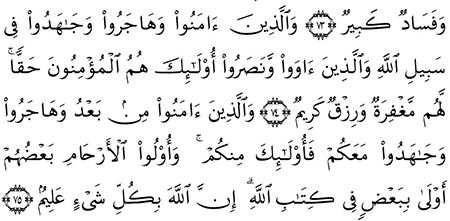 وَفَسَادٌ كَبِيرٌ ﴿٧٣﴾ وَالَّذِينَ ءَامَنُوا۟ وَهَاجَرُوا۟ وَجَـٰهَدُوا۟ فِى
سَبِيلِ اللَّهِ وَالَّذِينَ ءَاوَوا۟ وَّنَصَرُوٓا۟ أُو۟لَـٰٓئِكَ هُمُ الْمُؤْمِنُونَ حَقًّا ۚ
لَّهُم مَّغْفِرَةٌ وَرِزْقٌ كَرِيمٌ ﴿٧٤﴾ وَالَّذِينَ ءَامَنُوا۟ مِنۢ بَعْدُ وَهَاجَرُوا۟
وَجَـٰهَدُوا۟ مَعَكُمْ فَأُو۟لَـٰٓئِكَ مِنكُمْ ۚ وَأُو۟لُوا۟ الْأَرْحَامِ بَعْضُهُمْ
أَوْلَىٰ بِبَعْضٍ فِى كِتَـٰبِ اللَّهِ ۗ إِنَّ اللَّهَ بِكُلِّ شَىْءٍ عَلِيمٌۢ ﴿٧٥﴾